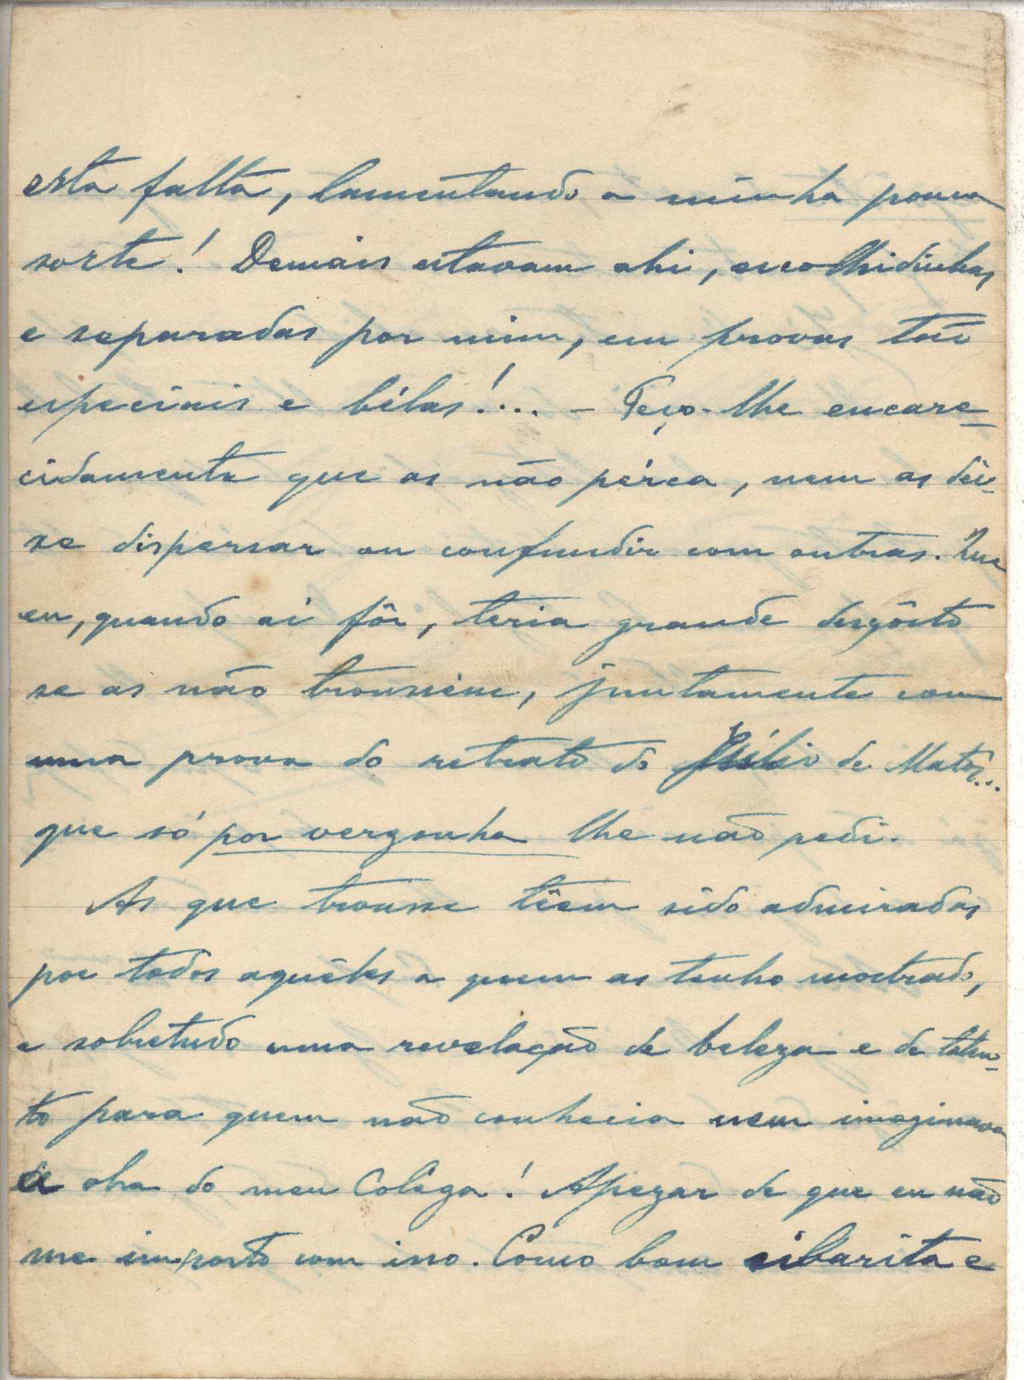 esta falta, lamentando a minha pouca
sorte! Demais estavam ahi, escolhidinhas
e separadas por mim, em provas tão
especiais e bélas!... - Peço-lhe encare-
cidamente que as não pérca, nem as dei-
xe dispersar ou confundir com outras. Que
eu, quando aí fôr, teria grande desgôsto
se as não trouxésse, juntamente com
uma prova do retrato do Júlio de Matos...
que só por vergonha lhe não pedi.
As que trousse têem sido admiradas
por todos aquêles a quem as tenho mostrado,
e sobretudo uma revelação de beleza e de talen-
to para quem não conhecia nem imaginava
a obra do meu Coléga! Apezar de que eu não
me importo com isso. Como bom sibarita e